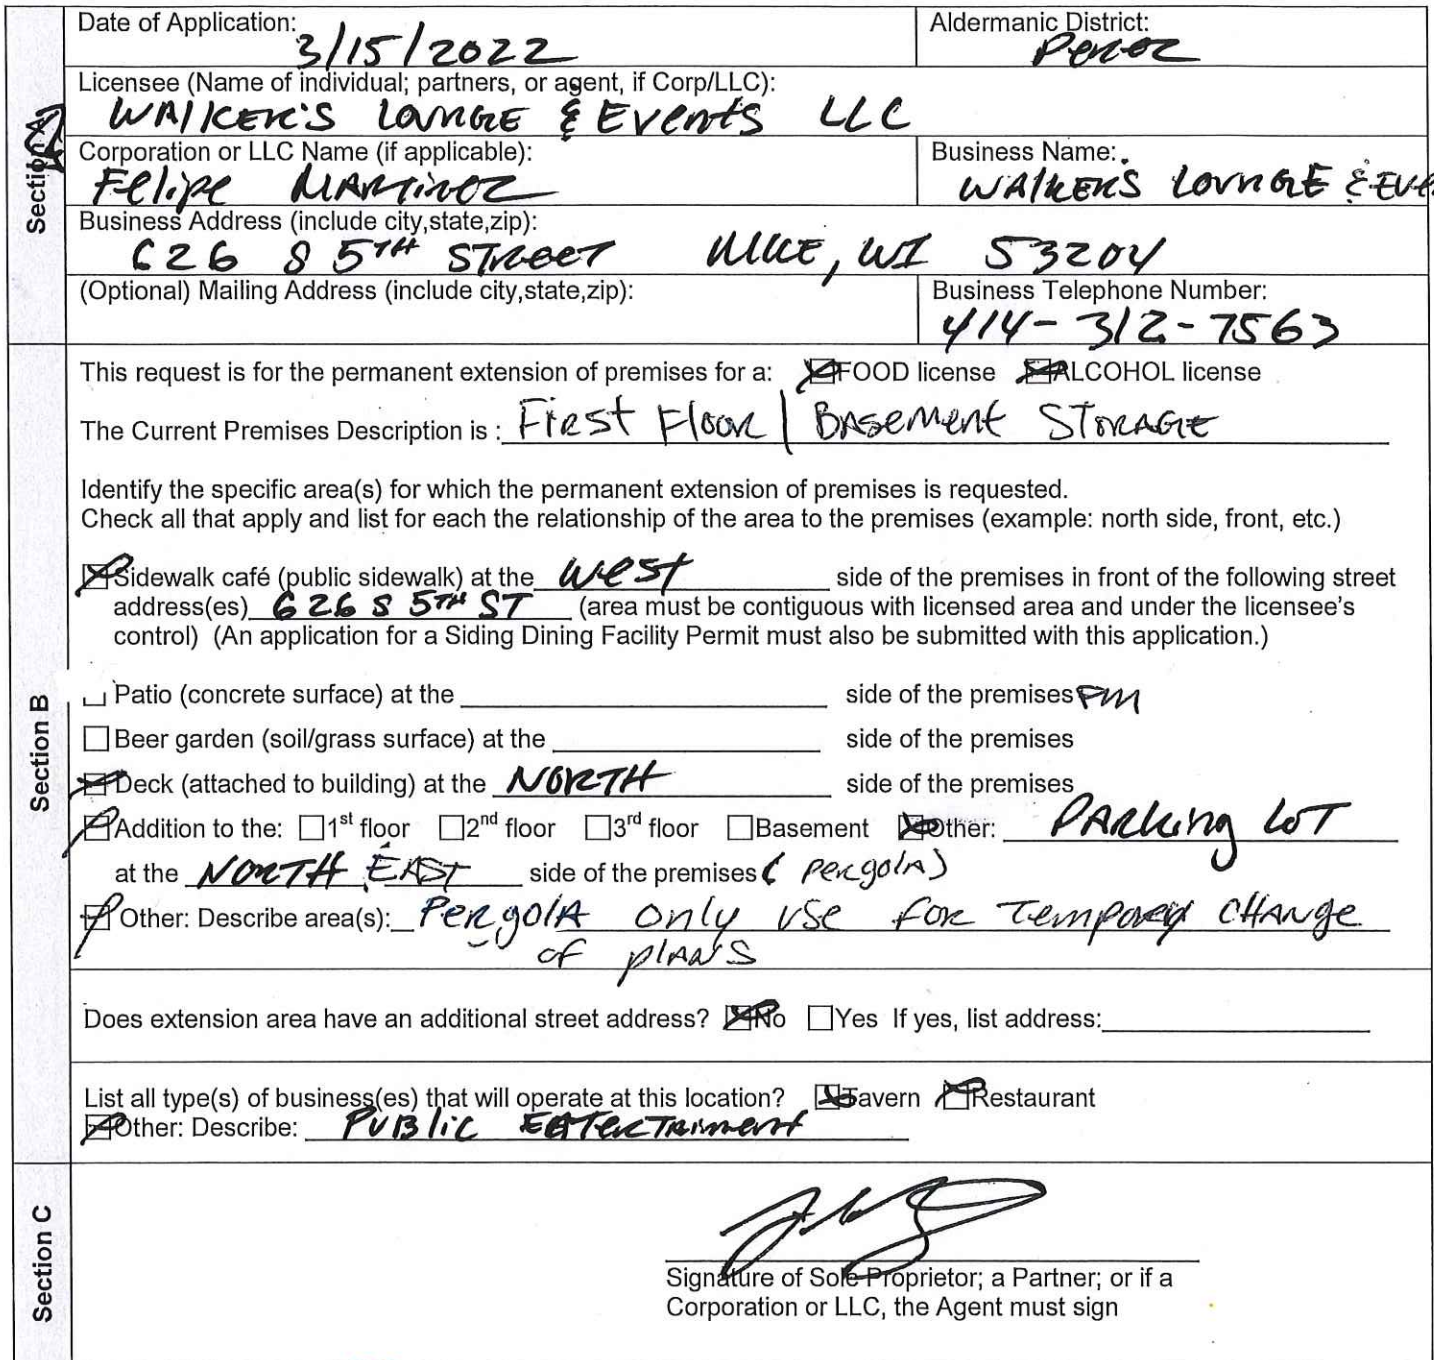 Date of Application: 3/15/2022
Aldermanic District: Perez
Licensee (Name of individual; partners, or agent, if Corp/LLC):
WAlKER'S LOUNGE & Events LLC
Corporation or LLC Name (if applicable): Felipe MARTinez
Business Name: WAlKERS LOUNGE & EVE
Business Address (include city,state,zip):
626 S 5TH STREET MKE, WI 53204
(Optional) Mailing Address (include city,state,zip):
Business Telephone Number: 414-312-7563
Section A
This request is for the permanent extension of premises for a: ☒FOOD license ☒ALCOHOL license
The Current Premises Description is : First Floor | Basement STORAGE
Identify the specific area(s) for which the permanent extension of premises is requested.
Check all that apply and list for each the relationship of the area to the premises (example: north side, front, etc.)
☒Sidewalk café (public sidewalk) at the west side of the premises in front of the following street
address(es) 626 S 5TH ST (area must be contiguous with licensed area and under the licensee's
control) (An application for a Siding Dining Facility Permit must also be submitted with this application.)
☐Patio (concrete surface) at the ____ side of the premises FM
☐Beer garden (soil/grass surface) at the ____ side of the premises
☒Deck (attached to building) at the NORTH side of the premises
☒Addition to the: ☐1st floor ☐2nd floor ☐3rd floor ☐Basement ☒Other: PARking LOT
at the NORTH EAST side of the premises ( PergolA)
☒Other: Describe area(s): PergolA only use for Tempory CHANge
of plANS
Section B
Does extension area have an additional street address? ☒No ☐Yes If yes, list address:
List all type(s) of business(es) that will operate at this location? ☒Tavern ☒Restaurant
☒Other: Describe: PUBlic
Section C
Signature of Sole Proprietor; a Partner; or if a
Corporation or LLC, the Agent must sign